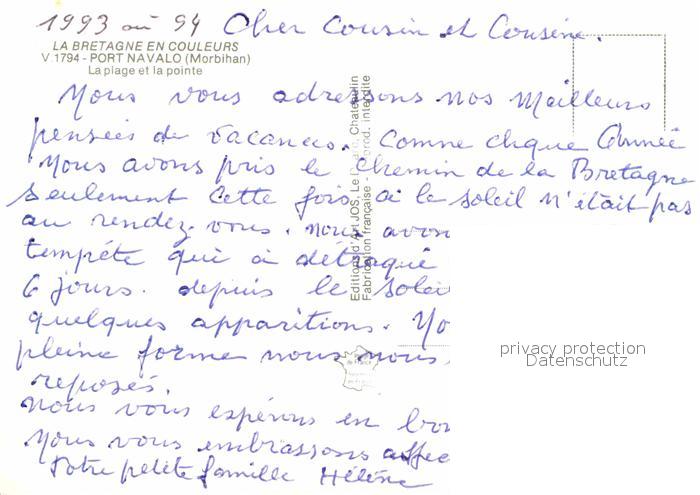 1993 ou 94 Cher Cousin et Cousine.
LA BRETAGNE EN COULEURS
V 1794 - PORT NAVALO (Morbihan)
La plage et la pointe
Nous vous adressons nos meilleurs
pensées de vacances. Comme chque Année
Nous avons pris le chemin de la Bretagne
seulement cette fois ci le soleil n'était pas
au rendez-vous. nous avon
tempéte qui à détraqué
6 jours. depuis le solei
quelques apparitions. No
pleine forme nous nous
reposés.
nous vous espérons en bon
Nous vous embrassons affec
Votre petite famille Hélène
Editions d'Art JOS, Le Chateaulin
Fabrication française - interdite
privacy protection
Datenschutz